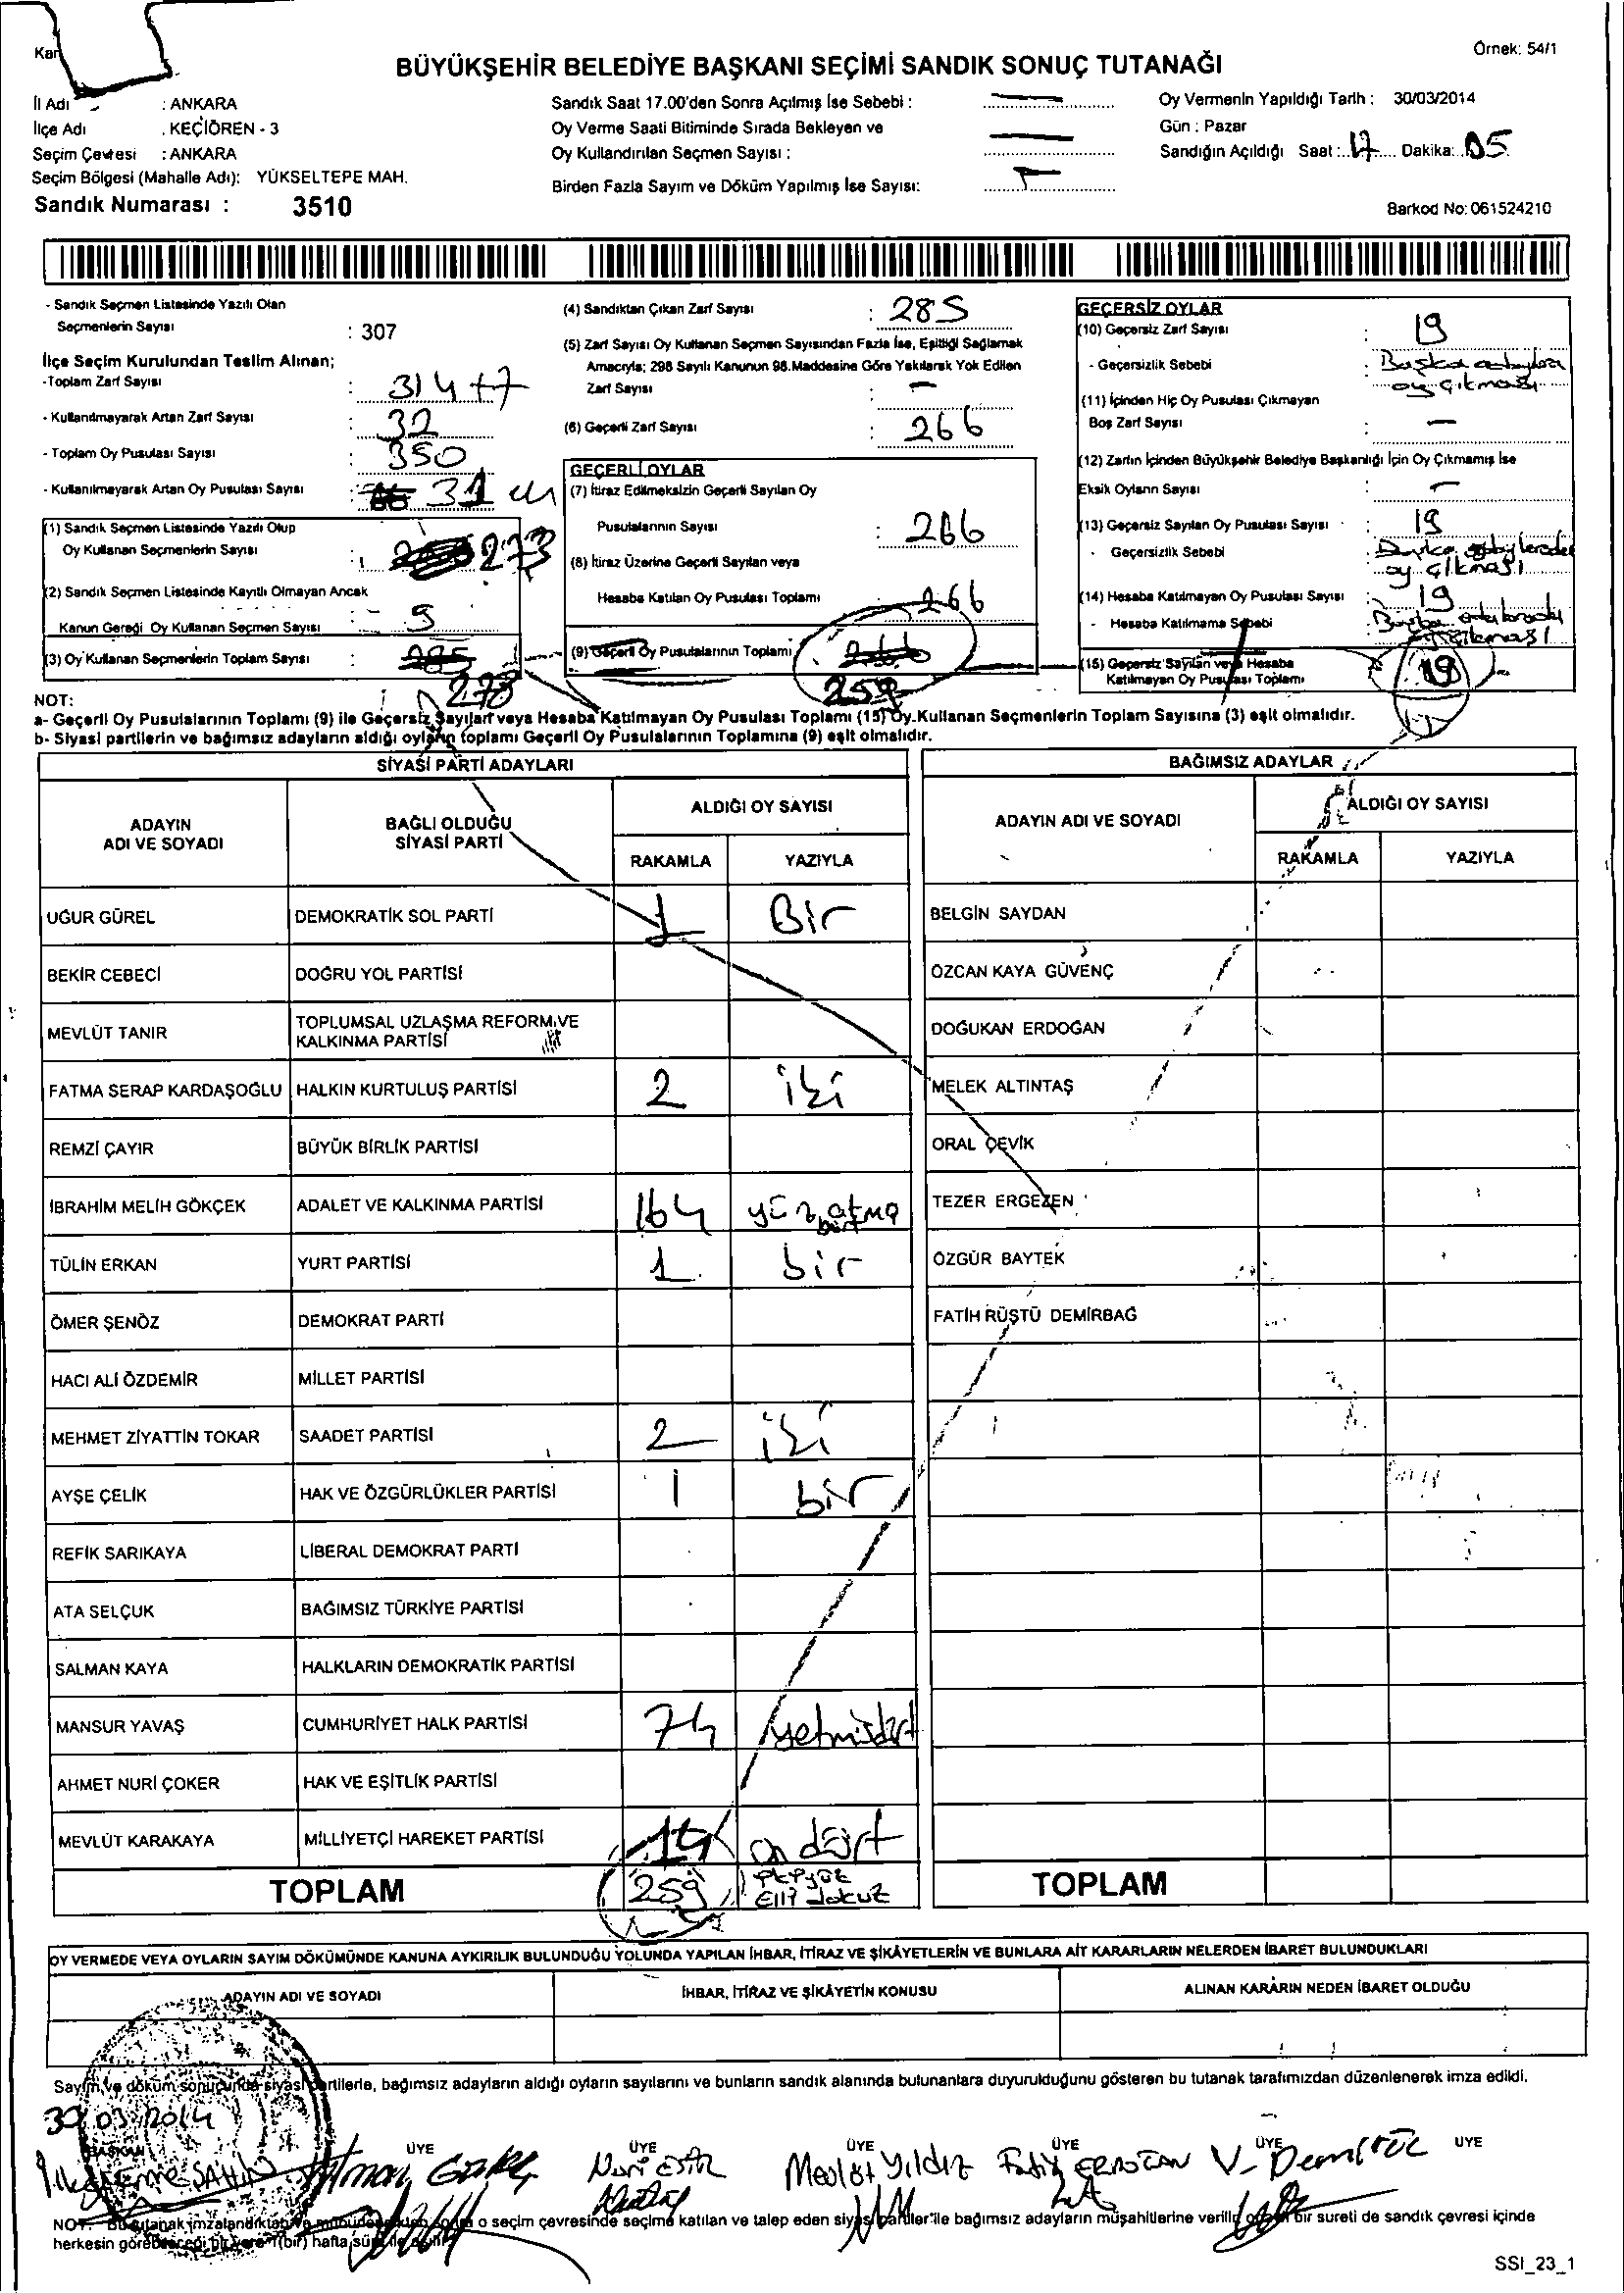 Örnek: 54/1
BÜYÜKŞEHİR BELEDİYE BAŞKANI SEÇİMİ SANDIK SONUÇ TUTANAĞI
İl Adı : ANKARA
İlçe Adı : KEÇİÖREN - 3
Seçim Çevresi : ANKARA
Seçim Bölgesi (Mahalle Adı): YÜKSELTEPE MAH.
Sandık Numarası : 3510
Sandık Saat 17.00'den Sonra Açılmış İse Sebebi :
Oy Verme Saati Bitiminde Sırada Bekleyen ve
Oy Kullandırılan Seçmen Sayısı :
Birden Fazla Sayım ve Döküm Yapılmış İse Sayısı:
Oy Vermenin Yapıldığı Tarih : 30/03/2014
Gün : Pazar
Sandığın Açıldığı Saat : 17 Dakika: 05
Barkod No: 061524210
- Sandık Seçmen Listesinde Yazılı Olan
Seçmenlerin Sayısı : 307
İlçe Seçim Kurulundan Teslim Alınan;
- Toplam Zarf Sayısı : 314+7
- Kullanılmayarak Artan Zarf Sayısı : 32
- Toplam Oy Pusulası Sayısı : 350
- Kullanılmayarak Artan Oy Pusulası Sayısı : 31
(1) Sandık Seçmen Listesinde Yazılı Olup
Oy Kullanan Seçmenlerin Sayısı : 273
(2) Sandık Seçmen Listesinde Kayıtlı Olmayan Ancak
Kanun Gereği Oy Kullanan Seçmen Sayısı : 5
(3) Oy Kullanan Seçmenlerin Toplam Sayısı : 285
278
(4) Sandıktan Çıkan Zarf Sayısı : 285
(5) Zarf Sayısı Oy Kullanan Seçmen Sayısından Fazla İse, Eşitliği Sağlamak
Amacıyla; 298 Sayılı Kanunun 98.Maddesine Göre Yakılarak Yok Edilen
Zarf Sayısı : -
(6) Geçerli Zarf Sayısı : 266
GEÇERLİ OYLAR
(7) İtiraz Edilmeksizin Geçerli Sayılan Oy
Pusulalarının Sayısı : 266
(8) İtiraz Üzerine Geçerli Sayılan veya
Hesaba Katılan Oy Pusulası Toplamı : 266
(9) Geçerli Oy Pusulalarının Toplamı : 266
259
GEÇERSİZ OYLAR
(10) Geçersiz Zarf Sayısı : 19
- Geçersizlik Sebebi : Başka
oy çıkması
(11) İçinden Hiç Oy Pusulası Çıkmayan
Boş Zarf Sayısı : -
(12) Zarfın İçinden Büyükşehir Belediye Başkanlığı İçin Oy Çıkmamış İse
Eksik Oyların Sayısı : -
(13) Geçersiz Sayılan Oy Pusulası Sayısı : 19
- Geçersizlik Sebebi :
oy çıkması
(14) Hesaba Katılmayan Oy Pusulası Sayısı : 19
- Hesaba Katılmama Sebebi :
(15) Geçersiz Sayılan veya Hesaba
Katılmayan Oy Pusulası Toplamı 19
NOT:
a- Geçerli Oy Pusulalarının Toplamı (9) ile Geçersiz Sayılan veya Hesaba Katılmayan Oy Pusulası Toplamı (15) Oy Kullanan Seçmenlerin Toplam Sayısına (3) eşit olmalıdır.
b- Siyasi partilerin ve bağımsız adayların aldığı oyların toplamı Geçerli Oy Pusulalarının Toplamına (9) eşit olmalıdır.
SİYASİ PARTİ ADAYLARI
ADAYIN ADI VE SOYADI BAĞLI OLDUĞU SİYASİ PARTİ ALDIĞI OY SAYISI
RAKAMLA YAZIYLA
UĞUR GÜREL DEMOKRATİK SOL PARTİ 1 Bir
BEKİR CEBECİ DOĞRU YOL PARTİSİ
MEVLÜT TANIR TOPLUMSAL UZLAŞMA REFORM VE KALKINMA PARTİSİ
FATMA SERAP KARDAŞOĞLU HALKIN KURTULUŞ PARTİSİ 2 iki
REMZİ ÇAYIR BÜYÜK BİRLİK PARTİSİ
İBRAHİM MELİH GÖKÇEK ADALET VE KALKINMA PARTİSİ 164 yüz atmış dört
TÜLİN ERKAN YURT PARTİSİ 1 bir
ÖMER ŞENÖZ DEMOKRAT PARTİ
HACI ALİ ÖZDEMİR MİLLET PARTİSİ
MEHMET ZİYATTİN TOKAR SAADET PARTİSİ 2 iki
AYŞE ÇELİK HAK VE ÖZGÜRLÜKLER PARTİSİ 1 bir
REFİK SARIKAYA LİBERAL DEMOKRAT PARTİ
ATA SELÇUK BAĞIMSIZ TÜRKİYE PARTİSİ
SALMAN KAYA HALKLARIN DEMOKRATİK PARTİSİ
MANSUR YAVAŞ CUMHURİYET HALK PARTİSİ 74 yetmişdört
AHMET NURİ ÇOKER HAK VE EŞİTLİK PARTİSİ
MEVLÜT KARAKAYA MİLLİYETÇİ HAREKET PARTİSİ 14 on dört
TOPLAM 259 Elli dokuz
BAĞIMSIZ ADAYLAR
ADAYIN ADI VE SOYADI ALDIĞI OY SAYISI
RAKAMLA YAZIYLA
BELGİN SAYDAN
ÖZCAN KAYA GÜVENÇ
DOĞUKAN ERDOĞAN
MELEK ALTINTAŞ
ORAL ÇEVİK
TEZER ERGEZEN
ÖZGÜR BAYTEK
FATİH RÜŞTÜ DEMİRBAĞ
TOPLAM
OY VERMEDE VEYA OYLARIN SAYIM DÖKÜMÜNDE KANUNA AYKIRILIK BULUNDUĞU YOLUNDA YAPILAN İHBAR, İTİRAZ VE ŞİKÂYETLERİN VE BUNLARA AİT KARARLARIN NELERDEN İBARET BULUNDUKLARI
ADAYIN ADI VE SOYADI İHBAR, İTİRAZ VE ŞİKÂYETİN KONUSU ALINAN KARARIN NEDEN İBARET OLDUĞU
Sayım ve döküm sonucunda siyasi partilerle, bağımsız adayların aldığı oyların sayılarını ve bunların sandık alanında bulunanlara duyurulduğunu gösteren bu tutanak tarafımızdan düzenlenerek imza edildi.
30/03/2014
BAŞKAN ÜYE ÜYE ÜYE ÜYE ÜYE ÜYE
Nuri Mevlüt Yıldız Fatih ERDOĞAN V.
NOT: Bu tutanak imzalandıktan ve o seçim çevresinde seçime katılan ve talep eden siyasi partiler ile bağımsız adayların müşahitlerine verilir bir sureti de sandık çevresi içinde
herkesin görebileceği bir yere 1(bir) hafta süre ile asılır.
SSI_23_1